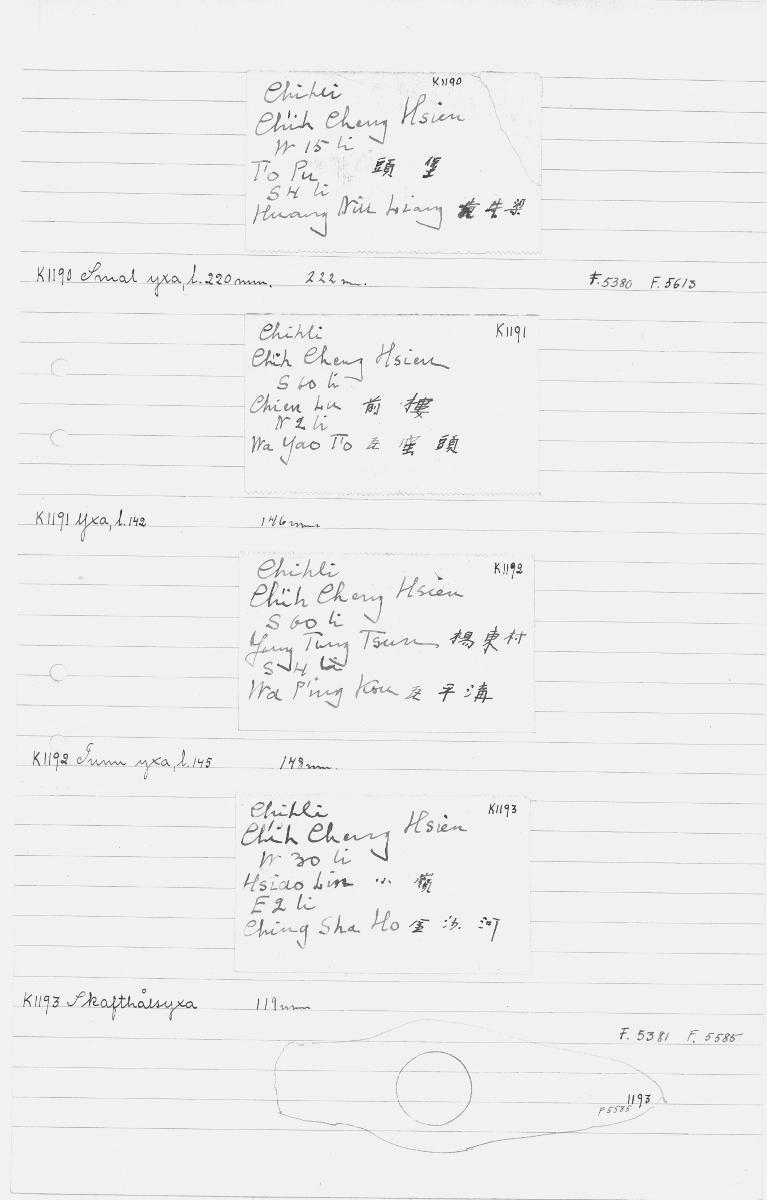 K1190
Chihli
Ch'ih Cheng Hsien
W 15 li
T'o Pu 頭 堡
S 4 li
Huang Niu Liang 黄 牛 梁
K1190 Smal yxa, l. 220 mm. 222 m. F. 5380 F. 5613
Chihli K1191
Ch'ih Cheng Hsien
S 60 li
Chien Lu 前 樓
N 2 li
Wa Yao T'o 瓦 窰 頭
K1191 Yxa, l. 142 146 mm
Chihli K1192
Ch'ih Cheng Hsien
S 60 li
Yang Tung Tsun 楊 東 村
S 4 li
Wa P'ing Kou 瓦 平 溝
K1192 Tunn yxa, l. 145 148 mm.
Chihli K1193
Ch'ih Cheng Hsien
W 30 li
Hsiao Lin 小 嶺
E 2 li
Ching Sha Ho 金 沙 河
K1193 Skafthålsyxa 119 mm
F. 5381 F. 5585
1193
F 5585